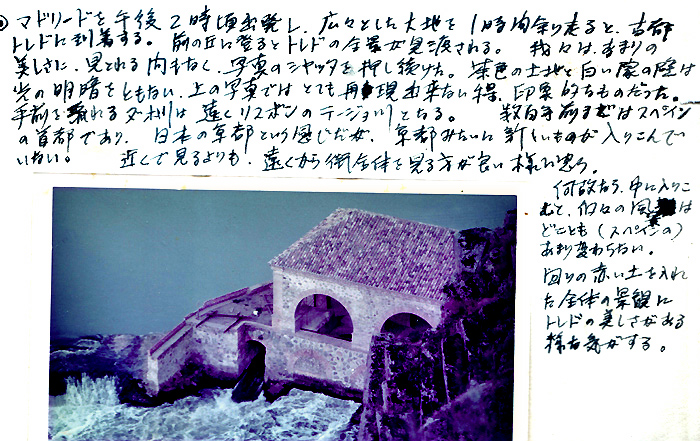 マドリードを午後2時頃出発し、広々とした大地を1時間余り走ると、古都
トレドに到着する。前の丘に登るとトレドの全景が見渡される。我々は、あまりの
美しさに、見とれる間もなく、写真のシャッタを押し続けた。茶色の土地と白い家の壁は
光の明暗をともない、上の写真ではとても再現出来ない様、印象的なものだった。
手前を流れるタホ川は遠くリスボンのテージョ川となる。数百年前まではスペイン
の首都であり、日本の京都という感じだが、京都みたいに新しいものが入りこんで
いない。近くで見るよりも、遠くから街全体を見る方が良い様に思う。
何故なら、中に入りこ
むと、個々の風景は
どことも(スペインの)
あまり変わらない。
回りの赤い土を入れ
た全体の景観に
トレドの美しさがある
様な気がする。